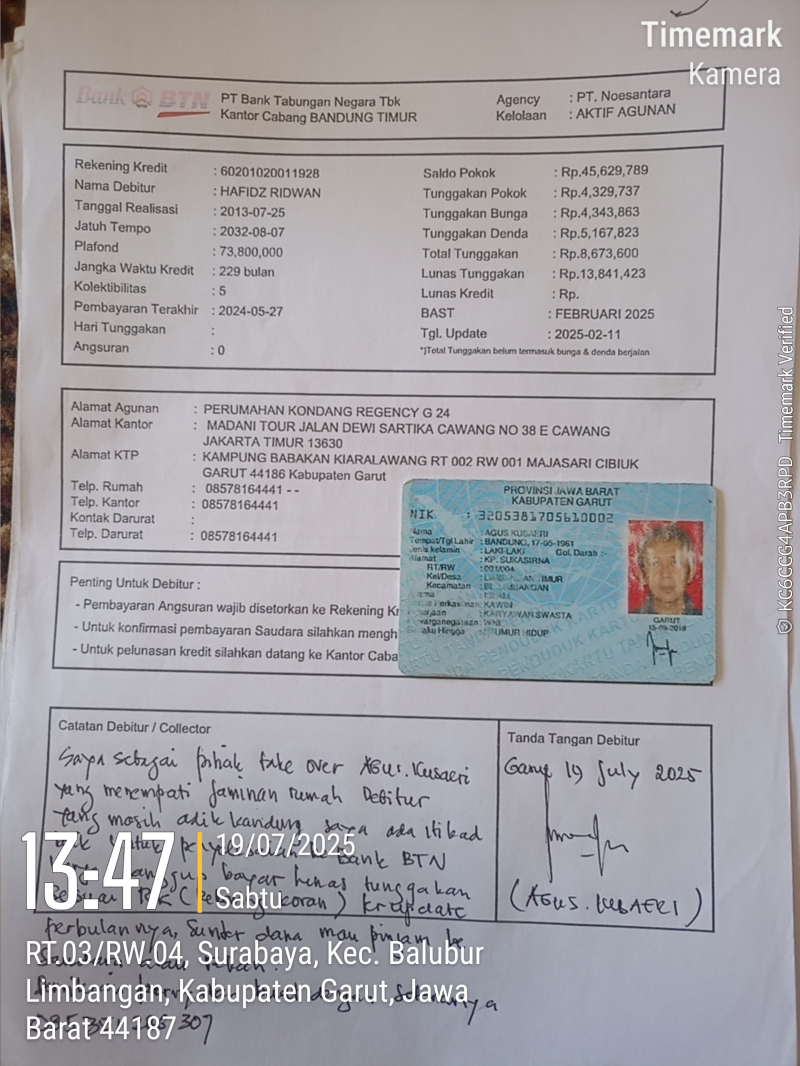 Timemark
Kamera
Bank BTN
PT Bank Tabungan Negara Tbk
Kantor Cabang BANDUNG TIMUR
Agency : PT. Noesantara
Kelolaan : AKTIF AGUNAN
Rekening Kredit : 60201020011928
Nama Debitur : HAFIDZ RIDWAN
Tanggal Realisasi : 2013-07-25
Jatuh Tempo : 2032-08-07
Plafond : 73,800,000
Jangka Waktu Kredit : 229 bulan
Kolektibilitas : 5
Pembayaran Terakhir : 2024-05-27
Hari Tunggakan :
Angsuran : 0
Saldo Pokok : Rp.45,629,789
Tunggakan Pokok : Rp.4,329,737
Tunggakan Bunga : Rp.4,343,863
Tunggakan Denda : Rp.5,167,823
Total Tunggakan : Rp.8,673,600
Lunas Tunggakan : Rp.13,841,423
Lunas Kredit : Rp.
BAST : FEBRUARI 2025
Tgl. Update : 2025-02-11
*)Total Tunggakan belum termasuk bunga & denda berjalan
Alamat Agunan : PERUMAHAN KONDANG REGENCY G 24
Alamat Kantor : MADANI TOUR JALAN DEWI SARTIKA CAWANG NO 38 E CAWANG
JAKARTA TIMUR 13630
Alamat KTP : KAMPUNG BABAKAN KIARALAWANG RT 002 RW 001 MAJASARI CIBIUK
GARUT 44186 Kabupaten Garut
Telp. Rumah : 08578164441 - -
Telp. Kantor : 08578164441
Kontak Darurat :
Telp. Darurat : 08578164441
PROVINSI JAWA BARAT
KABUPATEN GARUT
NIK : 3205381705610002
Nama : AGUS KUSAERI
Tempat/Tgl Lahir : BANDUNG, 17-05-1961
Jenis kelamin : LAKI-LAKI Gol. Darah :-
Alamat : KP. SUKASIRNA
RT/RW : 001/004
Kel/Desa
Kecamatan
KAWIN
KARYAWAN SWASTA
WNI
SEUMUR HIDUP
GARUT
15-09-2018
Penting Untuk Debitur :
- Pembayaran Angsuran wajib disetorkan ke Rekening Kr
- Untuk konfirmasi pembayaran Saudara silahkan mengh
- Untuk pelunasan kredit silahkan datang ke Kantor Caba
Catatan Debitur / Collector
Saya sebagai pihak take over Agus.Kusaeri
yang menempati jaminan rumah Debitur
yang masih adik kandung saya ada itikad
baik untuk Bank BTN
bayar lunas tunggakan
perbulannya, Sumber dana mau pinjam ke
Tanda Tangan Debitur
Garut 19 July 2025
(AGUS. KUSAERI)
13:47
19/07/2025
Sabtu
RT.03/RW.04, Surabaya, Kec. Balubur
Limbangan, Kabupaten Garut, Jawa
Barat 44187
© KC6CCG4APB3RPD Timemark Verified